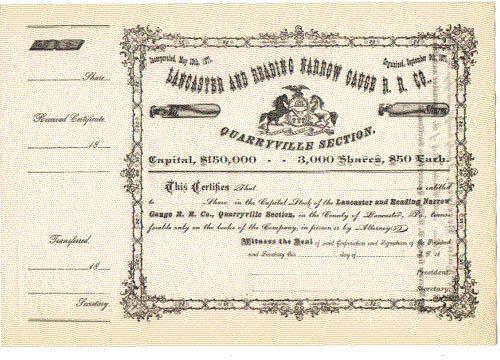 Share
Received Certificate.
18
Transferred.
18
Secretary
Incorporated, May 10th, 187
Organized, September 9th, 1871
LANCASTER AND READING NARROW GAUGE R. R. CO.,
Shares
QUARRYVILLE SECTION.
Capital, $150,000 - - 3,000 Shares, $50 Each.
This Certifies That is entitled
to Share in the Capital Stock of the Lancaster and Reading Narrow
Gauge R. R. Co., Quarryville Section, in the County of Lancaster, Pa., trans-
ferable only on the books of the Company, in person or by Attorney.
Witness the Seal of said Corporation and Signatures of the President
and Secretary this day of A.D. 18
President.
Secretary.